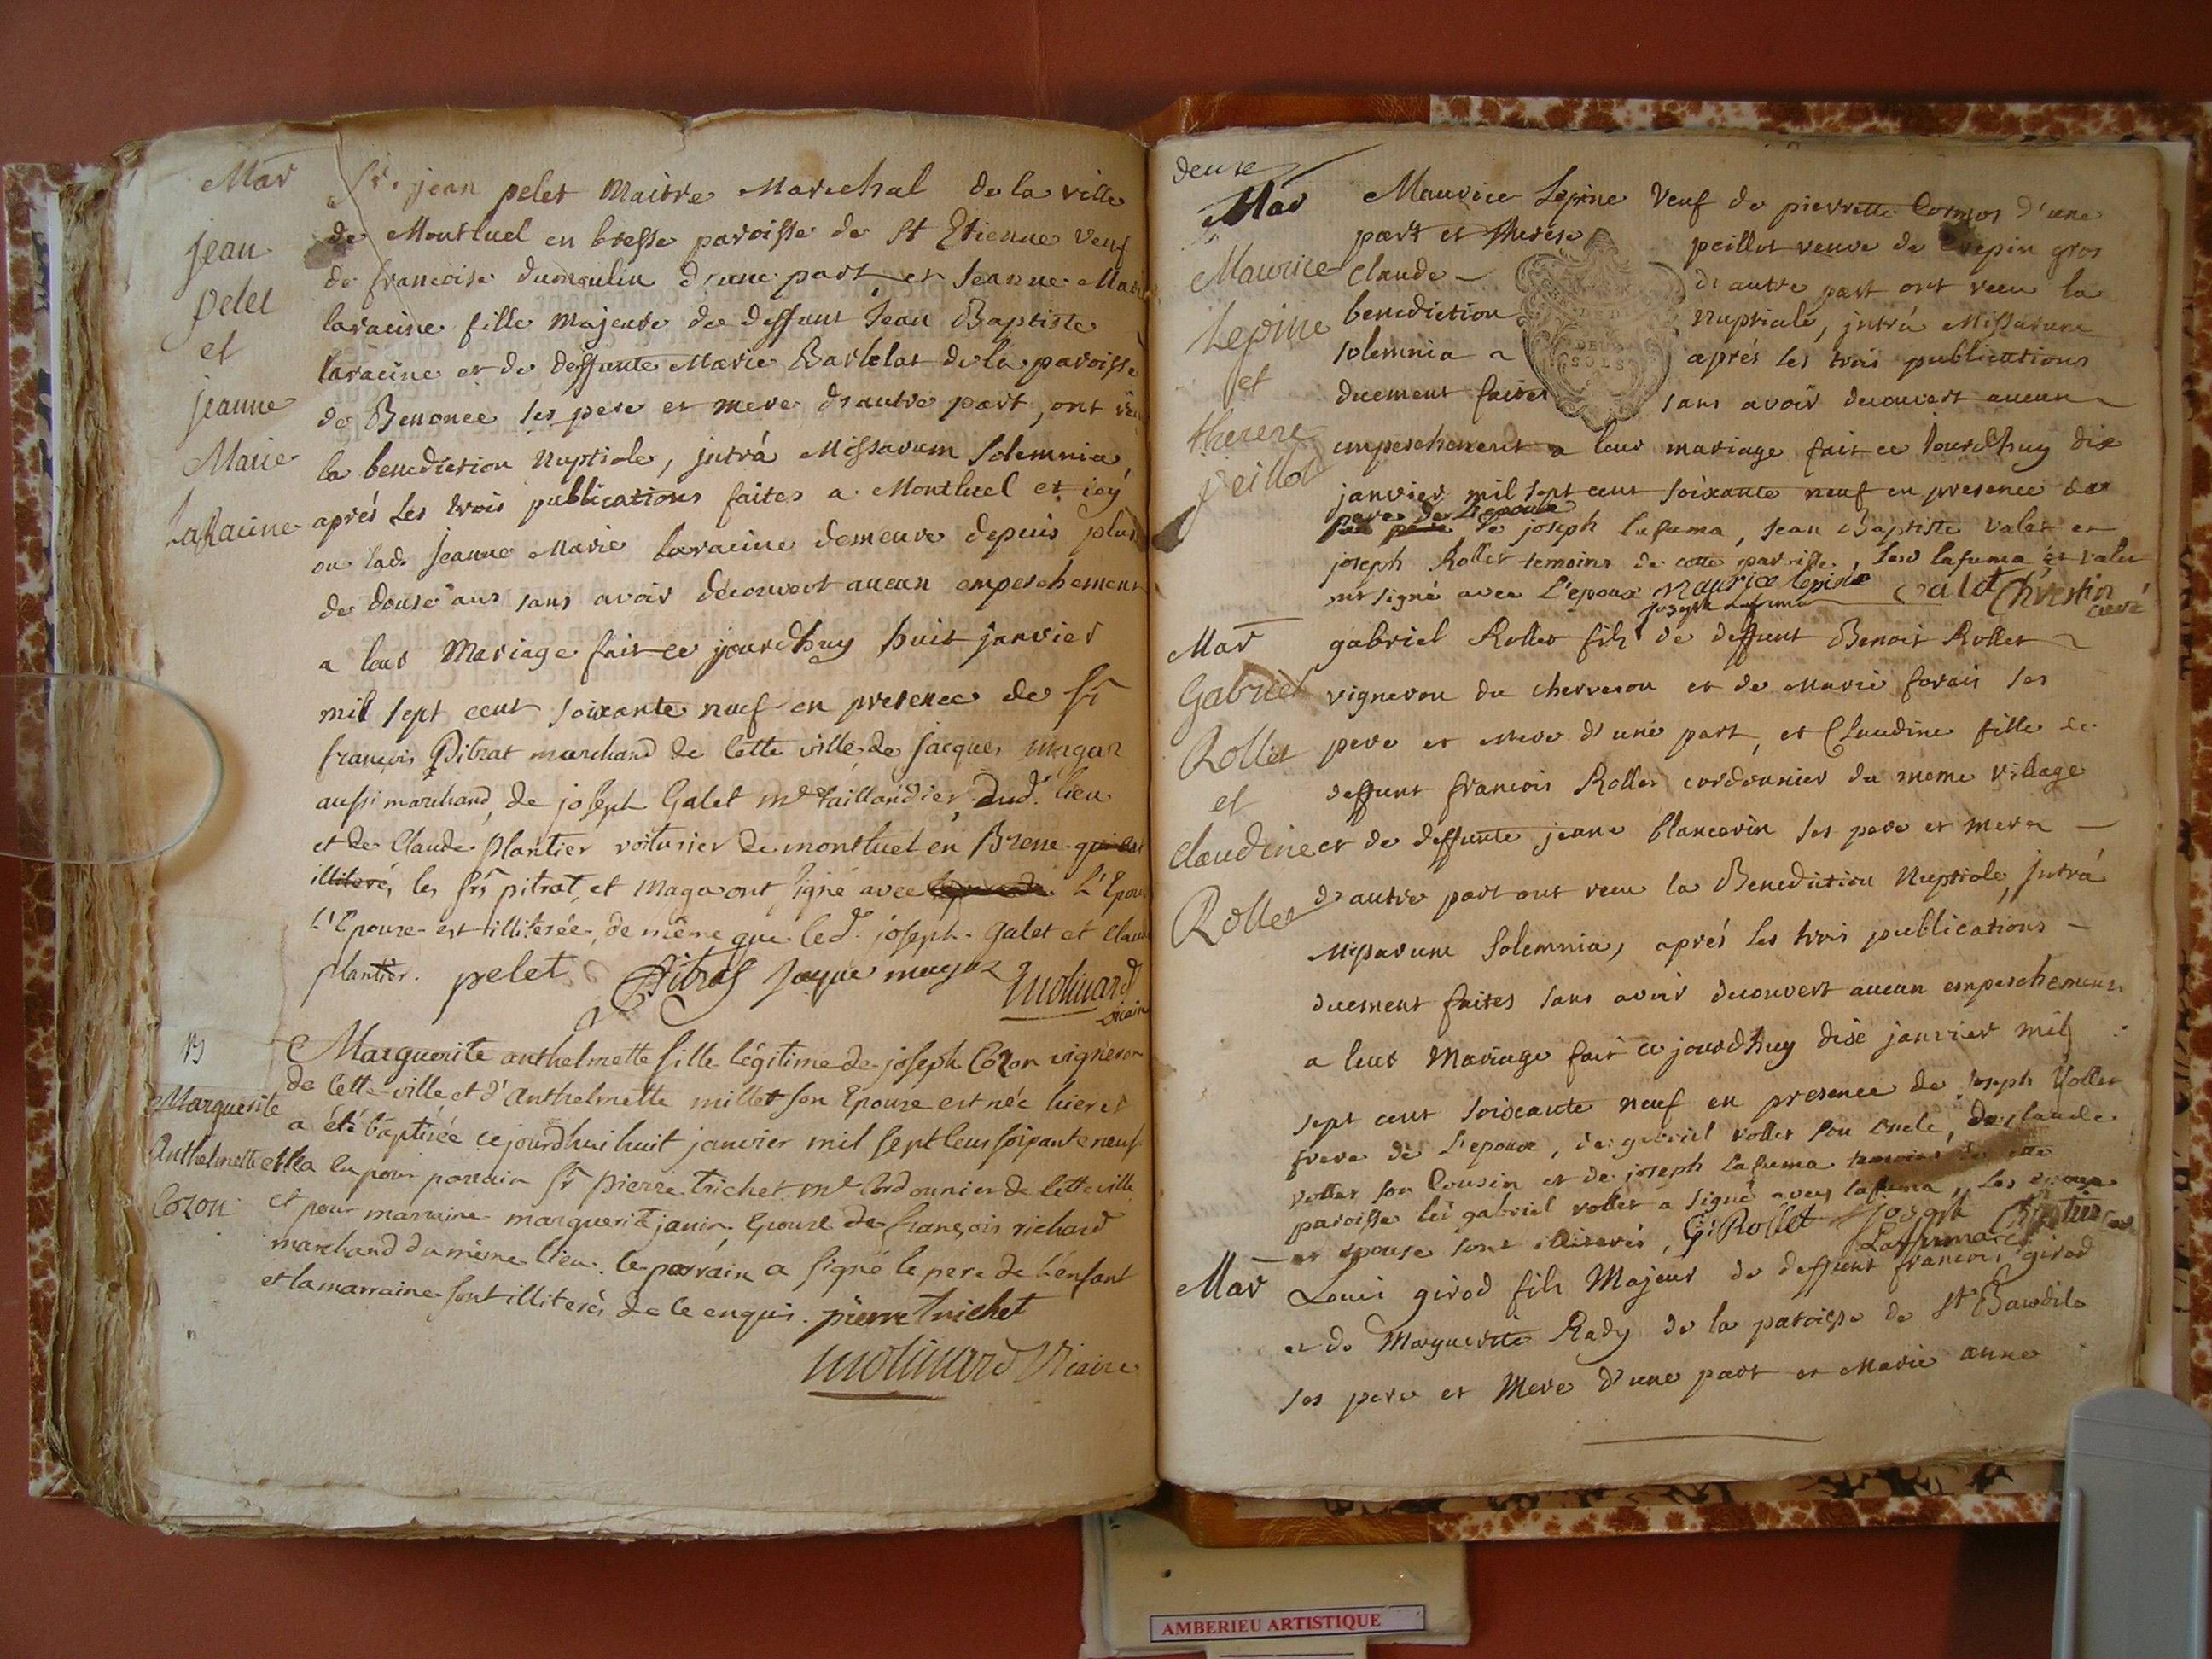 Mar
jean
pelet
et
jeanne
Marie
LaRacine
Sr. jean pelet Maitre Marechal de la ville
de Montluel en bresse paroisse de St Etienne Veuf
de francoise dumoulin d'une part et Jeanne Marie
laracine fille Majeure de deffunt Jean Baptiste
laracine et de deffunte Marie Barbelat de la paroisse
de Benonce ses pere et mere d'autre part, ont
la benediction Nuptiale, jntrá Missarum Solemnia,
aprés les trois publications faites a Montluel et icy
ou lad. Jeanne Marie laracine demeure depuis plus
de douse ans sans avoir decouvert aucun empeschement
a leur Mariage fait ce jourdhuy huit janvier
mil sept cent soixante neuf en presence de Sr
françois Pitrat marchand de Cette ville, de jacques
aussi marchand, de joseph Galet me taillandier, dud. lieu
et de Claude Plantier voiturier de montluel en Bresse qui est
illiteré, les srs pitrat et Magas ont signé avec L'Epoux
L'Epouse est illiterée, de même que led. joseph Galet et Claude
plantier. pelet Pitrat Jaque
Molinard
vicaire
B
Marguerite
Anthelmette
Cozon
Marguerite anthelmette fille légitime de joseph Cozon vigneron
de Cette ville et d'Anthelmette millet son Epouse est née hier et
a été baptisée cejourdhui huit janvier mil sept cent soixante neuf
elle a eu pour parrain Sr pierre trichet me Cordonnier de cette ville
et pour marraine marguerite janin Epouse de françois richard
marchand du même lieu. le parrain a signé le pere de l'enfant
et la marraine sont illiterés de ce enquis. pierre trichet
Molinard Vicaire
deuxe
Mar
Maurice
Lepine
et
therese
peillot
Maurice Lepine Veuf de pierrette Cormos d'une
part et therese peillot veuve de Crepin gros
Claude d'autre part ont recu la
benediction Nuptiale, jntrá Missarum
solemnia aprés les trois publications
duement faites sans avoir decouvert aucun
SOLS
empeschement a leur mariage fait ce Jourdhuy dix
janvier mil sept cent soixante neuf en presence de
pere de L'epouse
de joseph lafuma, Jean Baptiste Valet et
joseph Rollet temoins de cette paroisse, lesd lafuma et valet
ont signé avec L'epoux Maurice lepine
joseph lafuma valet Chrestin
curé
Mar
Gabriel
Rollet
et
Claudine
Rollet
gabriel Rollet fils de deffunt Benoit Rollet
vigneron du cherveron et de Marie forais ses
pere et Mere d'une part, et Claudine fille de
deffunt francois Rollet cordonnier du meme village
et de deffunte jeane blancavin ses pere et mere
d'autre part ont recu la Benediction Nuptiale, jntrá
Missarum Solemnia, aprés les trois publications
duement faites sans avoir decouvert aucun empeschement
a leur Mariage fait ce jourdhuy dixe janvier mil
sept cent soixante neuf en presence de joseph Rollet
frere de L'epoux, de gabriel rollet son oncle, de claude
rollet son Cousin et de joseph lafuma temoins de cette
paroisse led gabriel rollet a signé avec lafuma, les epoux
et epouse sont illiterés, G. Rollet joseph
Laffuma
Mar
Louis girod fils Majeur de deffunt francois girod
et de Marguerite Rady de la paroisse de St Baudile
ses pere et Mere d'une part et Marie anne
AMBERIEU ARTISTIQUE